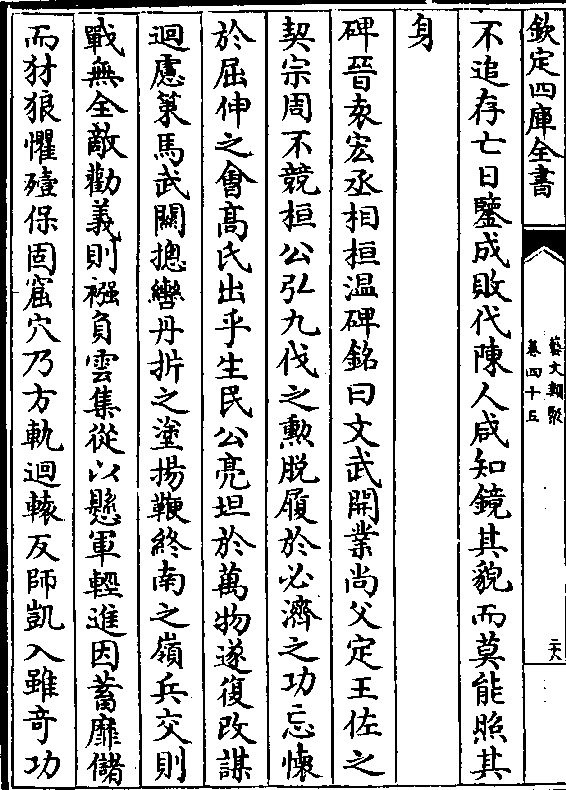 欽定四庫全書
藝文類聚
卷四十五
二六
不追存亡日鑒成敗代陳人咸知鏡其貌而莫能照其
身
碑晉袁宏丞相桓溫碑銘曰文武開業尚父定王佐之
契宗周不競桓公弘九伐之勲脱履於必濟之功忘懷
於屈伸之會髙氏出乎生民公亮坦於萬物遂復改謀
迴慮䇿馬武關揔轡丹折之塗揚鞭終南之嶺兵交則
戰無全敵勸義則襁負雲集從以懸軍輕進因蓄靡儲
而豺狼懼殪保固窟穴乃方軌迴轅反師凱入雖竒功